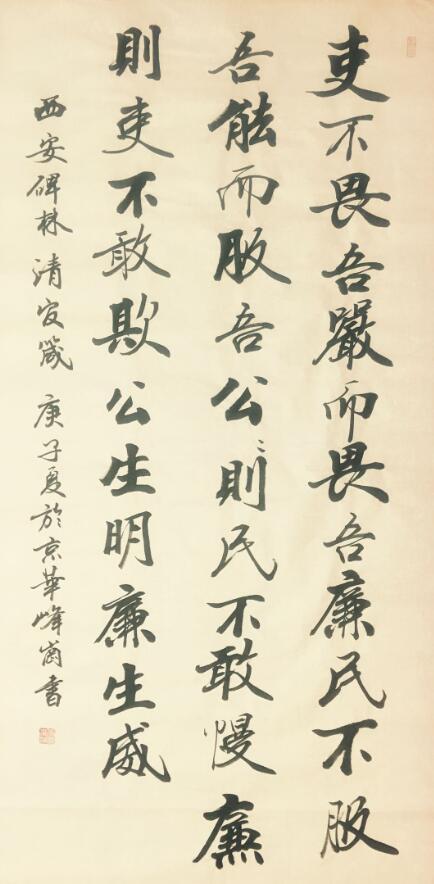 吏不畏吾嚴而畏吾廉民不服
吾能而服吾公〻則民不敢慢廉
則吏不敢欺公生明廉生威
西安碑林清官箴 庚子夏於京華峰崗書